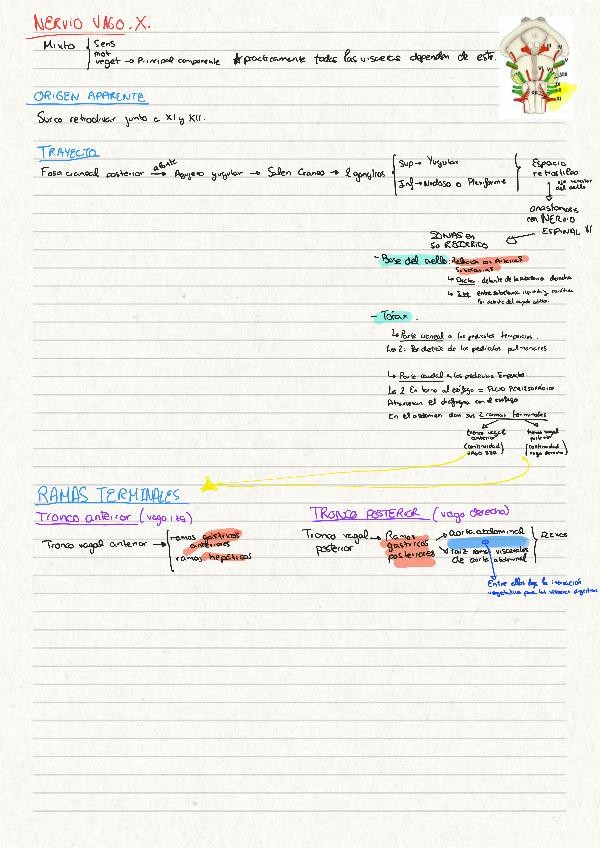 NERVIO VAGO. X.
Mixto { Sens
mot
veget → Principal componente * practicamente todas las visceras dependen de este.
ORIGEN APARENTE
Surco retroolivar junto a XI y XII.
TRAYECTO
Fosa craneal posterior → Agujero yugular → Salen Craneo → 2 ganglios { Sup → Yugular
Inf → Nodoso o Plexiforme } Espacio
retroestileo
anastomosis
con NERVIO
ESPINAL XI
ZONAS EN
SU RECORRIDO
- Base del cuello: Relación con Arterias
Subclavias
↳ Dcho: delante de la subclavia derecha
↳ Izq: entre subclavia izquierda y carótida
- Tórax.
↳ Parte craneal a los pedículos
Los 2: Por detrás de los pedículos pulmonares
↳ Parte caudal a los pedículos
Los 2 En torno al esófago = PLEXO PERIESOFÁGICO
Atraviesan el diafragma con el esófago
En el abdomen dan sus 2 ramas terminales
tronco vagal
anterior
(continuidad
VAGO IZQ)
tronco vagal
posterior
(continuidad
vago derecho)
RAMAS TERMINALES
Tronco anterior (vago izq)
Tronco vagal anterior → { ramas gástricas
anteriores
ramas hepáticas
TRONCO POSTERIOR (vago derecho)
Tronco vagal
posterior → Ramas
gastricas
posteriores
aorta abdominal
raiz ramas viscerales
de aorta abdominal
} PLEXOS
Entre ellos llega la inervación
vegetativa para las visceras digestivas